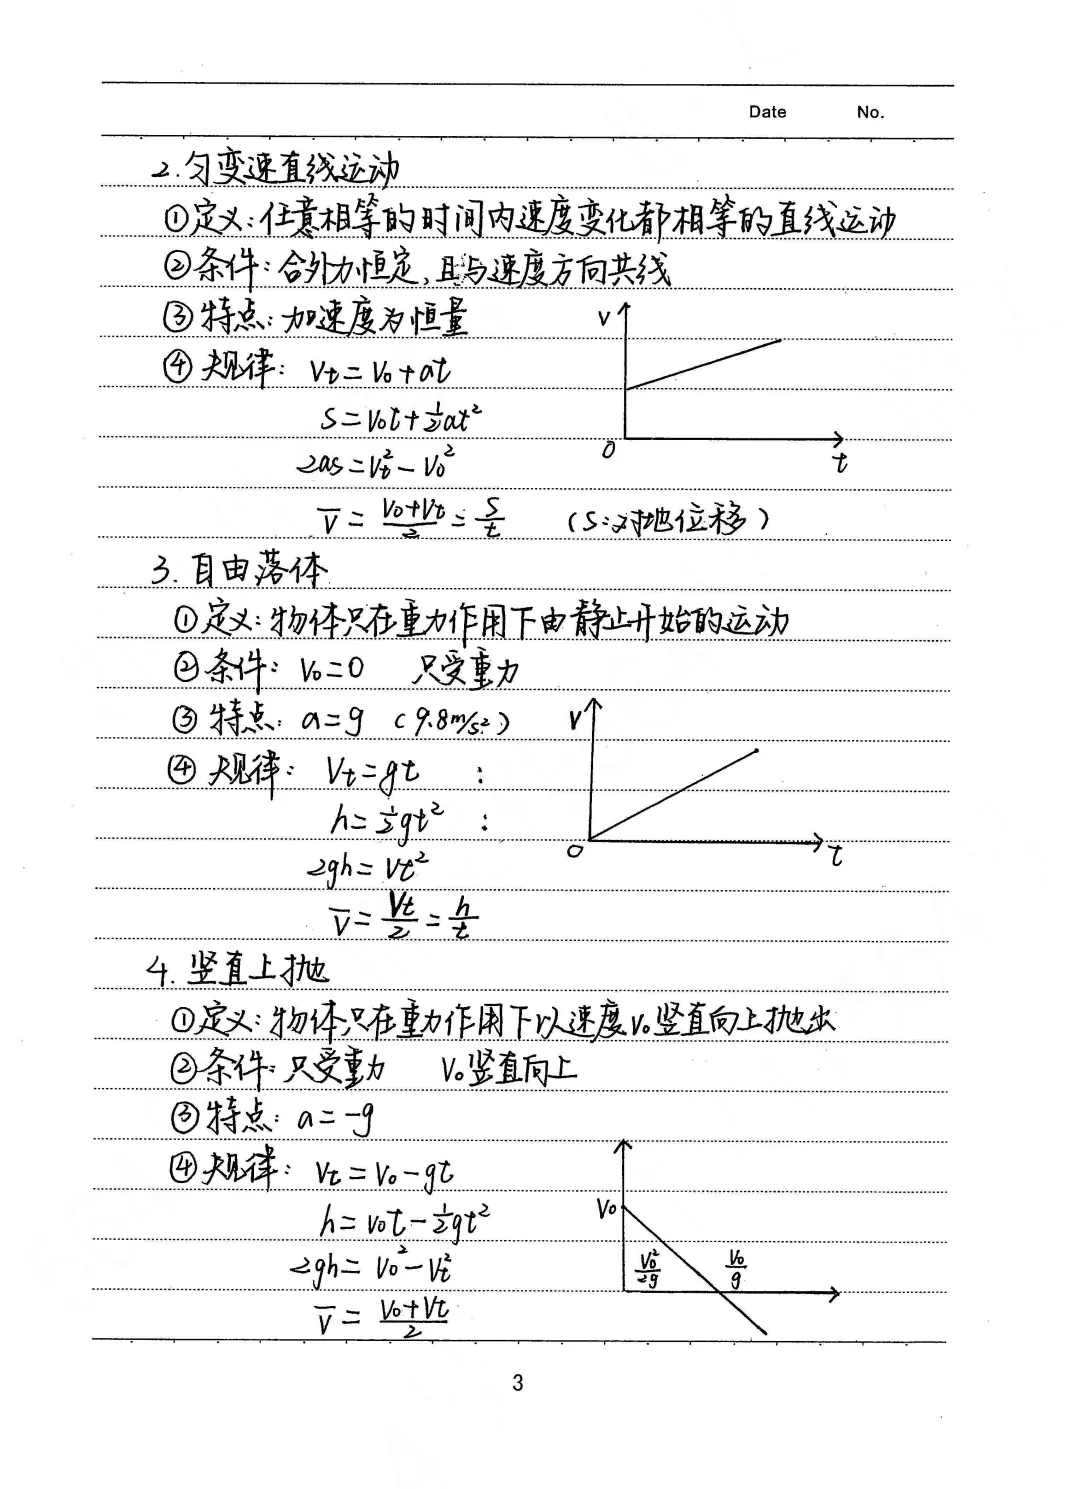 Date No.
2.匀变速直线运动
①定义:任意相等的时间内速度变化都相等的直线运动
②条件:合外力恒定,且与速度方向共线
③特点:加速度为恒量
V
④规律: Vt=V₀+at
S=V₀t+½at²
0 t
2as=Vt²-V₀²
V̅=(V₀+Vt)/2=S/t (S:对地位移)
3.自由落体
①定义:物体只在重力作用下由静止开始的运动
②条件: V₀=0 只受重力
③特点: a=g (9.8m/s²)
V
④规律: Vt=gt :
h=½gt² :
0 t
2gh=Vt²
V̅=Vt/2=h/t
4.竖直上抛
①定义:物体只在重力作用下以速度V₀竖直向上抛出
②条件:只受重力 V₀竖直向上
③特点: a=-g
④规律: Vt=V₀-gt
h=V₀t-½gt²
V₀
2gh=V₀²-Vt²
V₀²/2g V₀/g
V̅=(V₀+Vt)/2
3